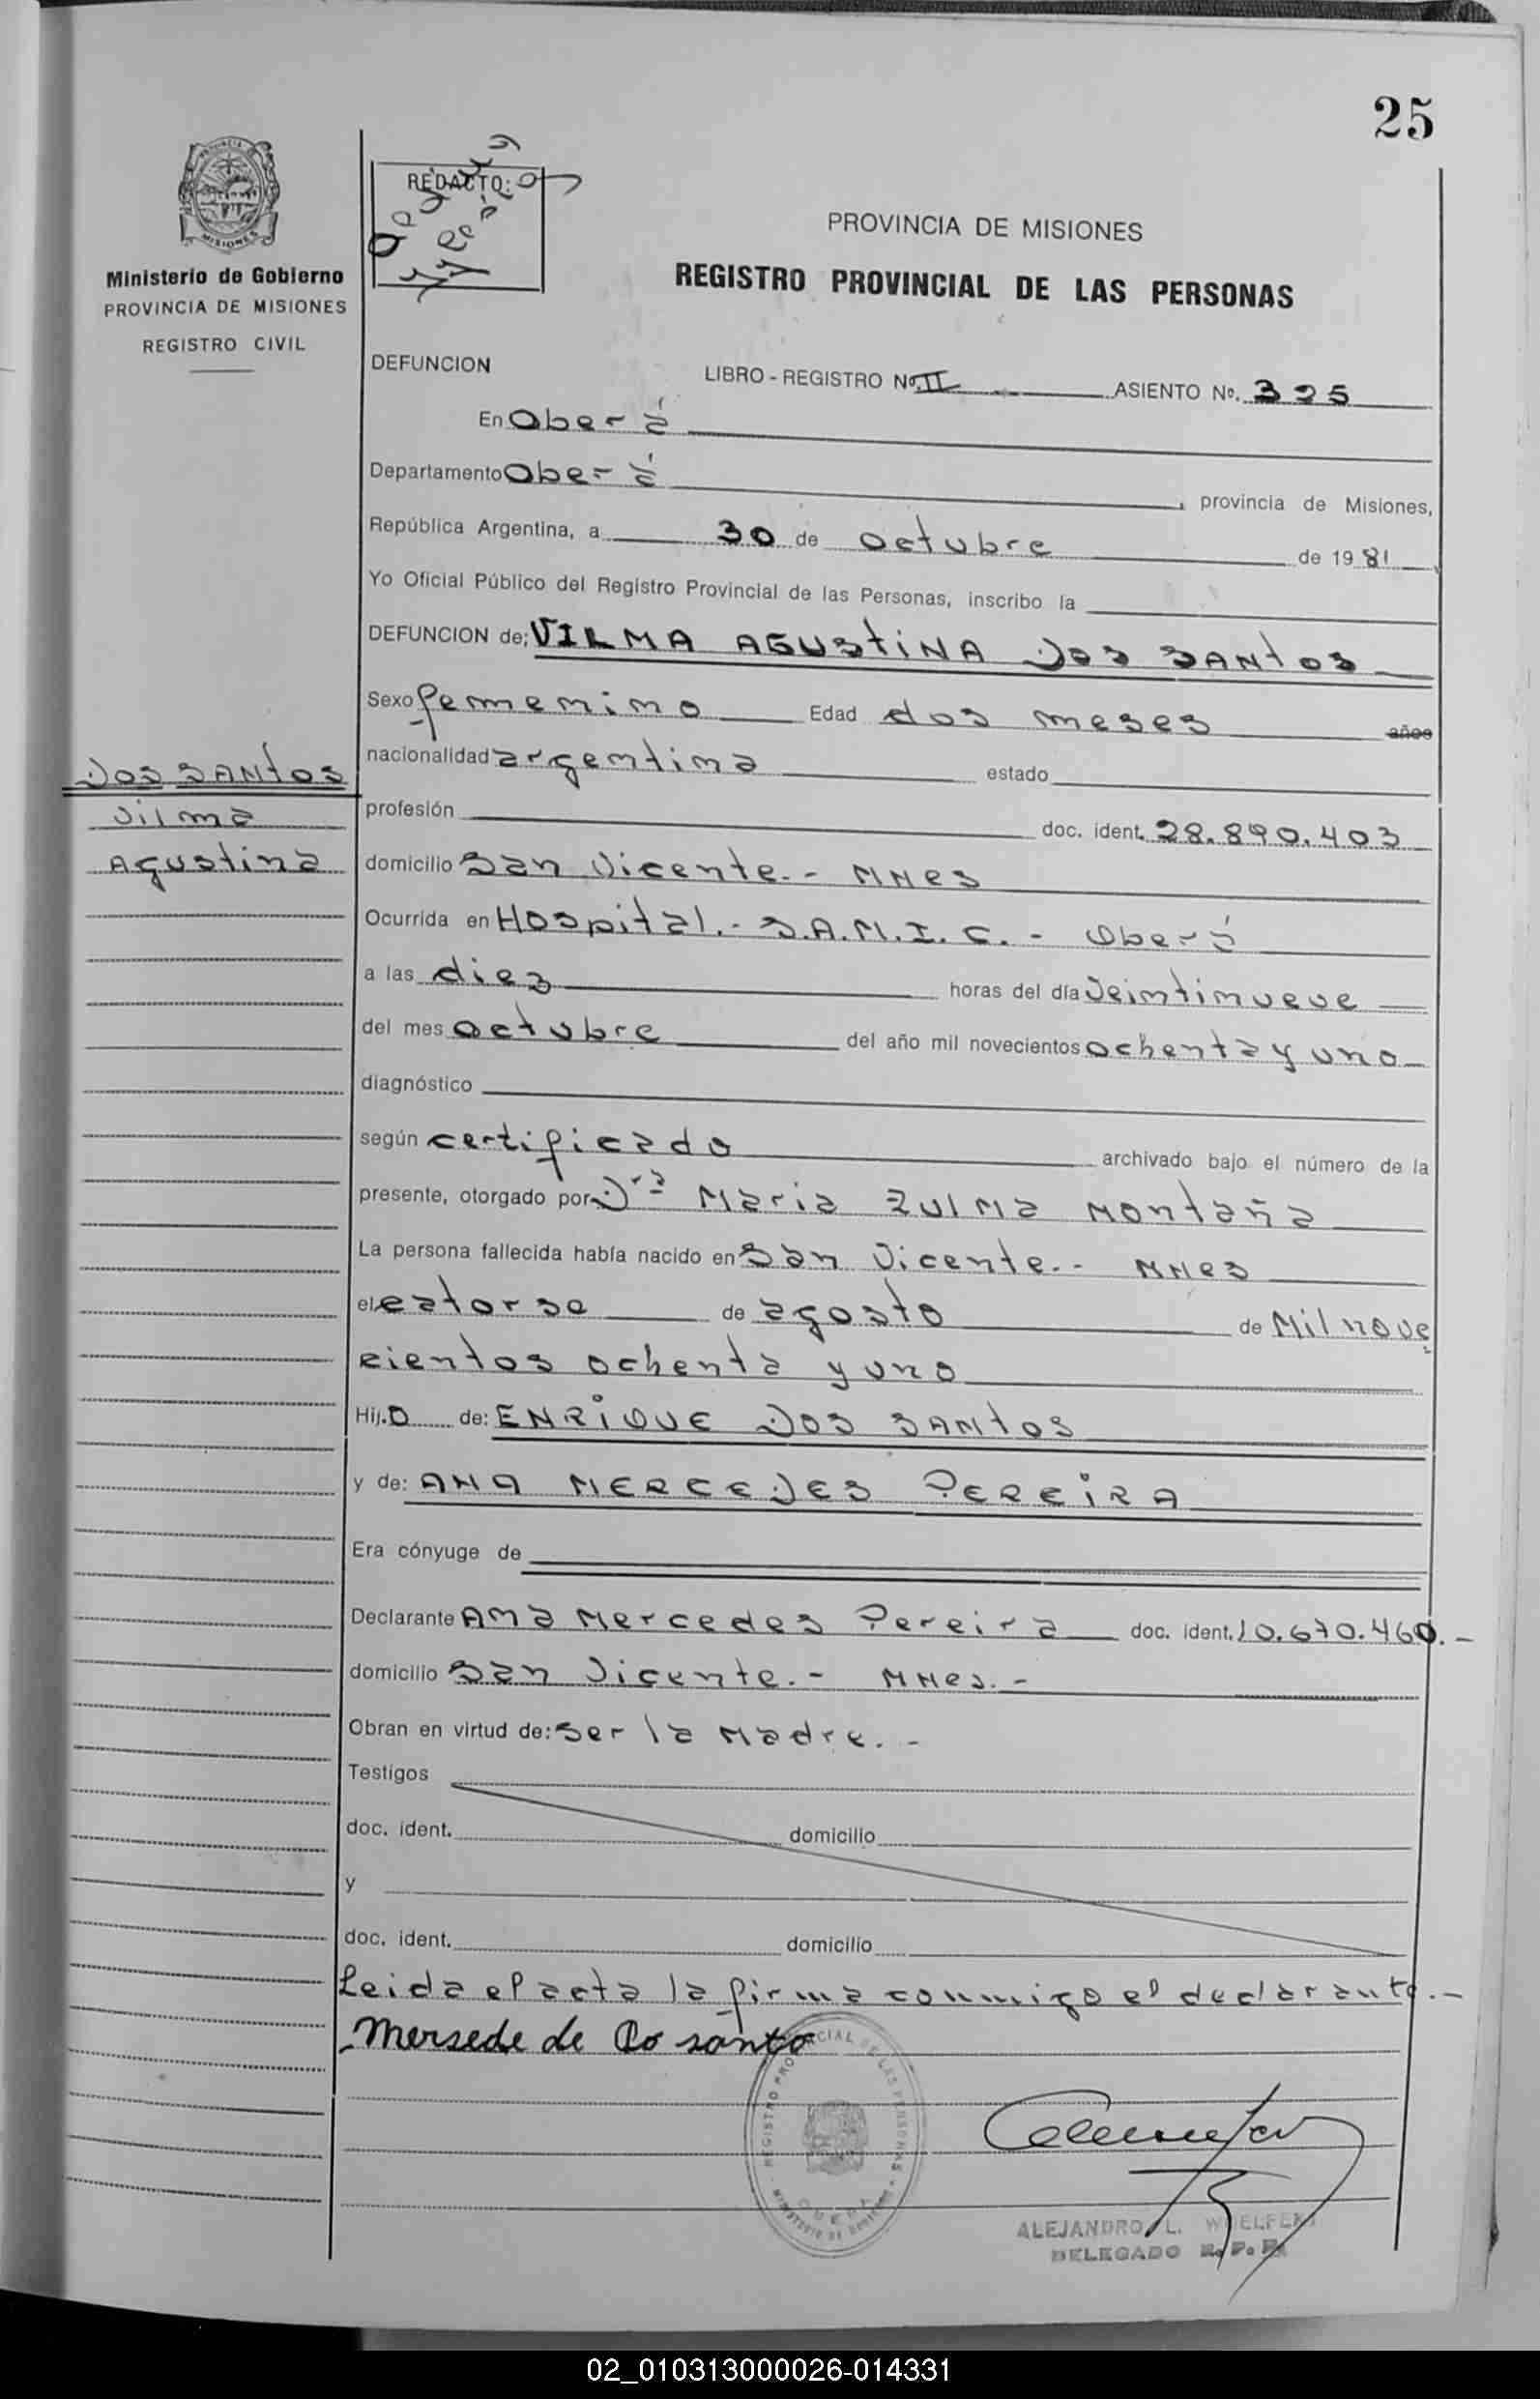 25
PROVINCIA DE MISIONES
REGISTRO PROVINCIAL DE LAS PERSONAS
Ministerio de Gobierno
PROVINCIA DE MISIONES
REGISTRO CIVIL
REDACTO:
DEFUNCION LIBRO - REGISTRO Nº. II ASIENTO Nº. 325
En Oberá
Departamento Oberá, provincia de Misiones,
República Argentina, a 30 de octubre de 1981
Yo Oficial Público del Registro Provincial de las Personas, inscribo la
DEFUNCION de; VILMA AGUStiNA DOS SANtOS
Sexo femenino Edad dos meses años
nacionalidad argentina estado
DOS SANtOS
Vilma
Agustina
profesión doc. ident. 28.890.403
domicilio San Vicente.- MNes
Ocurrida en Hospital.- S.A.M.I.C.- Oberá
a las diez horas del día Veintinueve
del mes octubre del año mil novecientos ochenta y uno
diagnóstico
según certificado archivado bajo el número de la
presente, otorgado por Dra Maria Zulma Montaña
La persona fallecida había nacido en San Vicente.- MNes
el catorse de agosto de Mil nove
cientos ochenta y uno
Hij.o de: ENRiQUE DOS SANtOS
y de: ANA MERCEDES PEREiRA
Era cónyuge de
Declarante Ana Mercedes Pereira doc. ident. 10.670.460.-
domicilio San Vicente.- MNes.-
Obran en virtud de: Ser la Madre.-
Testigos
doc. ident. domicilio
y
doc. ident. domicilio
Leida el acta la firma conmigo el declarante.-
Mersede de Do santo
REGISTRO PROVINCIAL DE LAS PERSONAS
MINISTERIO DE GOBIERNO
OBERA
ALEJANDRO L. WOELFERT
DELEGADO R. P. P.
02_010313000026-014331